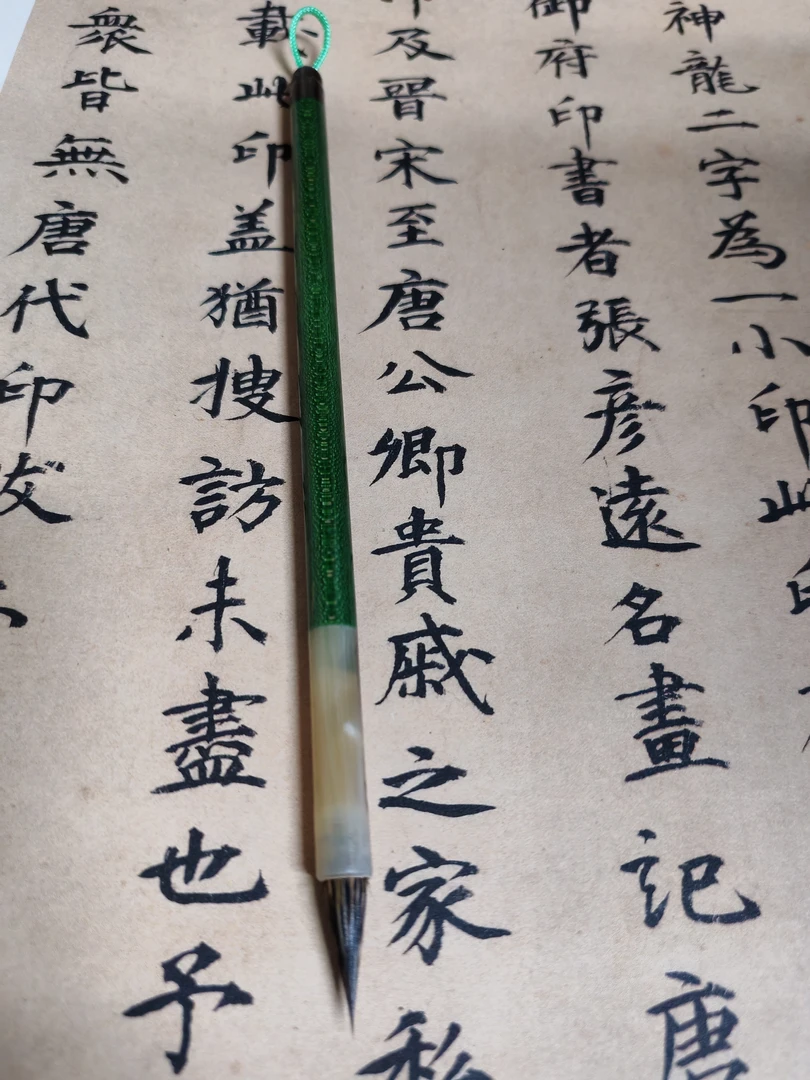 神龍二字為一小印此印
御府印書者張彥遠名畫記唐
印及晉宋至唐公卿貴戚之家私
載此印盖猶搜訪未盡也予
衆皆無唐代印